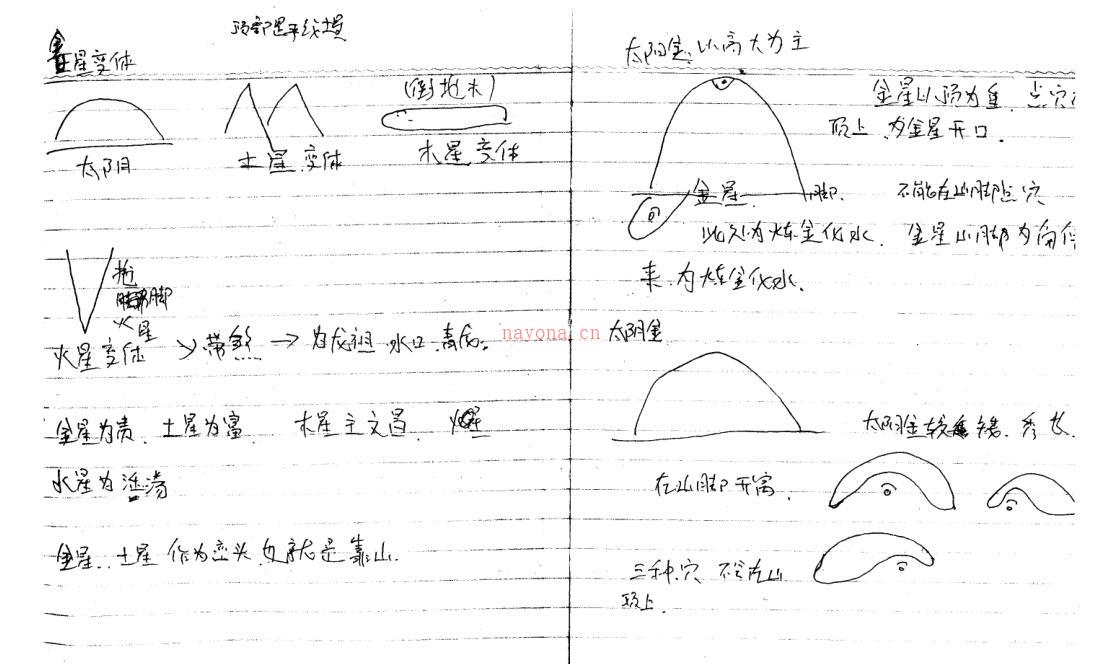 顶部是平缓墁
金星变体
(倒地木)
太阳
木星变体
木星变体
火星
火星变体 带煞 → 为龙祖 水口
金星为贵、土星为富、木星主文昌、
水星为淫荡
金星、土星作为峦头也就是靠山.
太阳金:以高大为主
金星以顶为重、点穴
顶上、为金星开口.
金星 脚. 不能在山脚点穴
此穴为炼金化水. 金星山脚为
来、为炼金化水.
太阴金
太阴金较 矮. 秀长.
在山脚开窝.
三种穴 不会在山
顶上.
nayona.cn